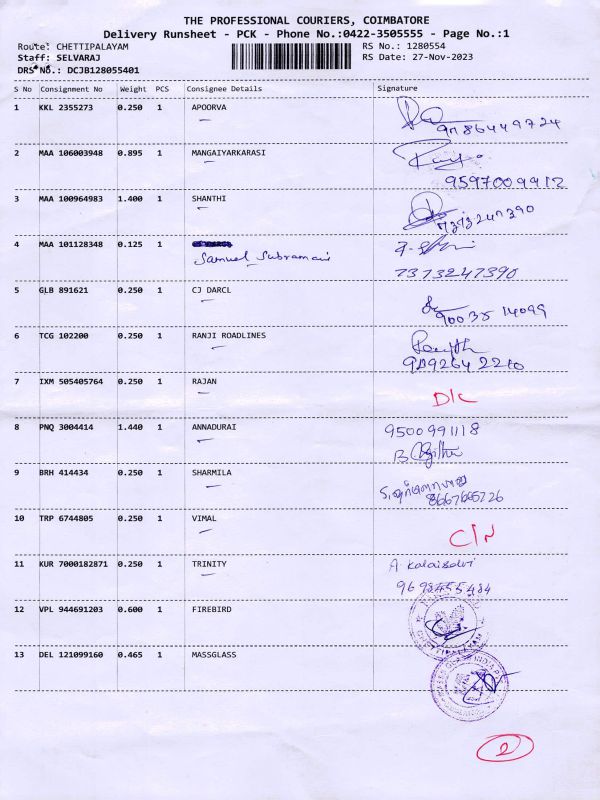 THE PROFESSIONAL COURIERS, COIMBATORE
Delivery Runsheet - PCK - Phone No.:0422-3505555 - Page No.:1
Route: CHETTIPALAYAM RS No.: 1280554
Staff: SELVARAJ RS Date: 27-Nov-2023
DRS No.: DCJB128055401
S No Consignment No Weight PCS Consignee Details Signature
1 KKL 2355273 0.250 1 APOORVA
2 MAA 106003948 0.895 1 MANGAIYARKARASI
9597009912
3 MAA 100964983 1.400 1 SHANTHI
7373247390
4 MAA 101128348 0.125 1
Samuel Subramani
7373247390
5 GLB 891621 0.250 1 CJ DARCL
90035 14099
6 TCG 102200 0.250 1 RANJI ROADLINES
7 IXM 505405764 0.250 1 RAJAN
D/L
8 PNQ 3004414 1.440 1 ANNADURAI
9500991118
9 BRH 414434 0.250 1 SHARMILA
10 TRP 6744805 0.250 1 VIMAL
C/N
11 KUR 7000182871 0.250 1 TRINITY
A. Kalaiselvi
9698455484
12 VPL 944691203 0.600 1 FIREBIRD
CHETTIPALAYAM
13 DEL 121099160 0.465 1 MASSGLASS
2